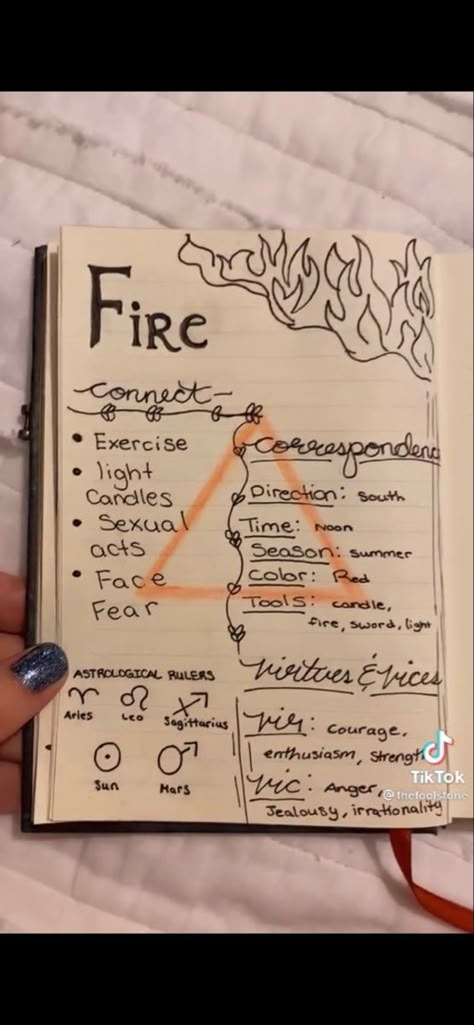 Fire
Connect-
• Exercise
• light
Candles
• Sexual
acts
• Face
Fear
Correspondenc
Direction: South
Time: Noon
Season: summer
Color: Red
Tools: candle,
fire, sword, light
ASTROLOGICAL RULERS
Aries Leo Sagittarius
Sun Mars
Virtues & Vices
Vir: Courage,
enthusiasm, strengt
Vic: Anger,
Jealousy, irrationality
TikTok
@thefoolstone